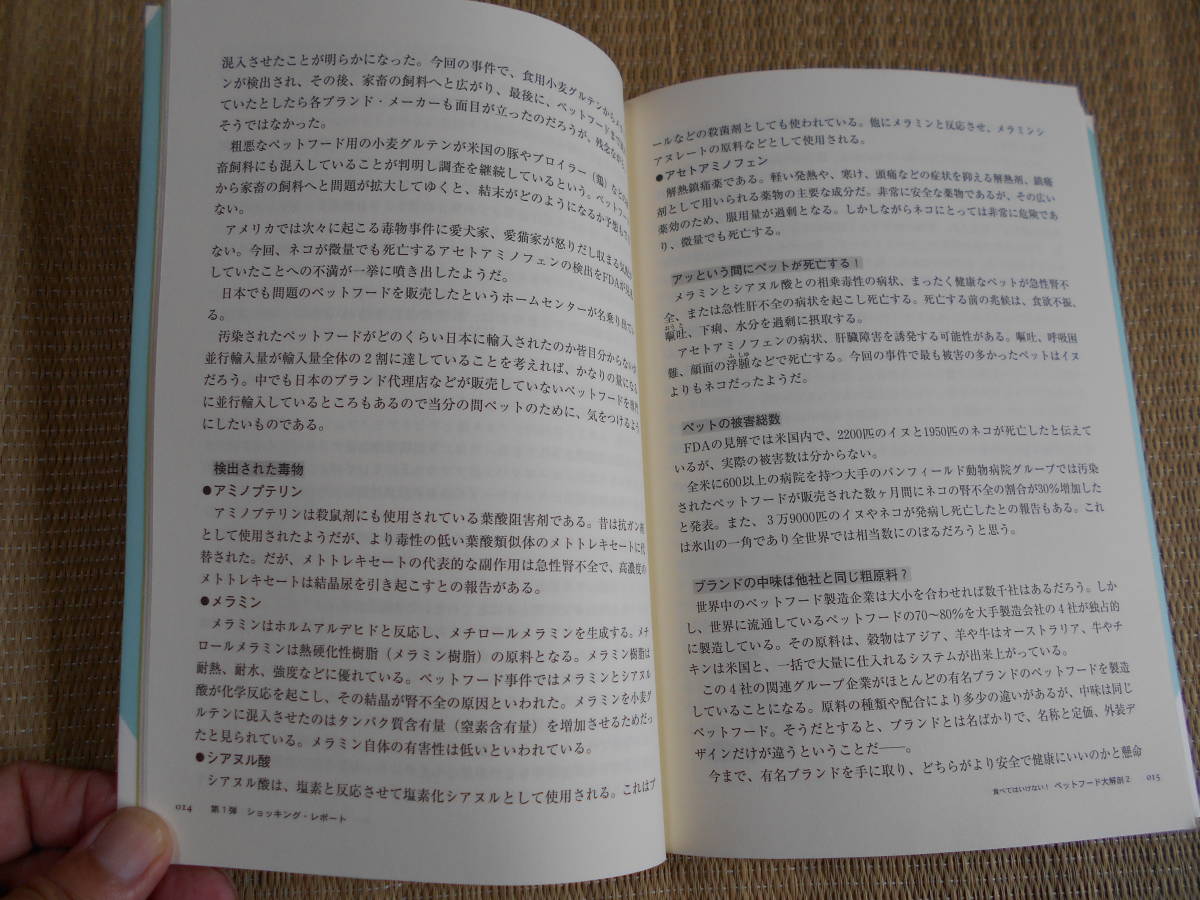 混入させたことが明らかになった。今回の事件で、食用小麦グルテンからメラ
ンが検出され、その後、家畜の飼料へと広がり、最後に、ペットフードまで
ていたとしたら各ブランド・メーカーも面目が立ったのだろうが、残念ながら
そうではなかった。
粗悪なペットフード用の小麦グルテンが米国の豚やブロイラー（鶏）などの
畜飼料にも混入していることが判明し調査を継続しているという。ペットフー
から家畜の飼料へと問題が拡大してゆくと、結末がどのようになるか予想も
ない。
アメリカでは次々に起こる毒物事件に愛犬家、愛猫家が怒りだし収まる気配が
ない。今回、ネコが微量でも死亡するアセトアミノフェンの検出をFDAが
していたことへの不満が一挙に噴き出したようだ。
日本でも問題のペットフードを販売したというホームセンターが名乗り出てい
る。
汚染されたペットフードがどのくらい日本に輸入されたのか皆目分からないが
並行輸入量が輸入量全体の2割に達していることを考えれば、かなりの量になる
だろう。中でも日本のブランド代理店などが販売していないペットフードを
に並行輸入しているところもあるので当分の間ペットのために、気をつけるよう
にしたいものである。
検出された毒物
●アミノプテリン
アミノプテリンは殺鼠剤にも使用されている葉酸阻害剤である。昔は抗ガン剤
として使用されたようだが、より毒性の低い葉酸類似体のメトトレキセートに代
替された。だが、メトトレキセートの代表的な副作用は急性腎不全で、高濃度の
メトトレキセートは結晶尿を引き起こすとの報告がある。
●メラミン
メラミンはホルムアルデヒドと反応し、メチロールメラミンを生成する。メチ
ロールメラミンは熱硬化性樹脂（メラミン樹脂）の原料となる。メラミン樹脂は
耐熱、耐水、強度などに優れている。ペットフード事件ではメラミンとシアヌル
酸が化学反応を起こし、その結晶が腎不全の原因といわれた。メラミンを小麦グ
ルテンに混入させたのはタンパク質含有量（窒素含有量）を増加させるためだっ
たと見られている。メラミン自体の有害性は低いといわれている。
●シアヌル酸
シアヌル酸は、塩素と反応させて塩素化シアヌルとして使用される。これはプ
014 第1弾 ショッキング・レポート
ールなどの殺菌剤としても使われている。他にメラミンと反応させ、メラミンシ
アヌレートの原料などとして使用される。
●アセトアミノフェン
解熱鎮痛薬である。軽い発熱や、寒け、頭痛などの症状を抑える解熱剤、鎮痛
剤として用いられる薬物の主要な成分だ。非常に安全な薬物であるが、その広い
薬効のため、服用量が過剰となる。しかしながらネコにとっては非常に危険であ
り、微量でも死亡する。
アッという間にペットが死亡する！
メラミンとシアヌル酸との相乗毒性の病状、まったく健康なペットが急性腎不
全、または急性肝不全の病状を起こし死亡する。死亡する前の兆候は、食欲不振、
嘔吐、下痢、水分を過剰に摂取する。
アセトアミノフェンの病状、肝臓障害を誘発する可能性がある。嘔吐、呼吸困
難、顔面の浮腫などで死亡する。今回の事件で最も被害の多かったペットはイヌ
よりもネコだったようだ。
ペットの被害総数
FDAの見解では米国内で、2200匹のイヌと1950匹のネコが死亡したと伝えて
いるが、実際の被害数は分からない。
全米に600以上の病院を持つ大手のバンフィールド動物病院グループでは汚染
されたペットフードが販売された数ヶ月間にネコの腎不全の割合が30%増加した
と発表。また、3万9000匹のイヌやネコが発病し死亡したとの報告もある。これ
は氷山の一角であり全世界では相当数にのぼるだろうと思う。
ブランドの中味は他社と同じ粗原料？
世界中のペットフード製造企業は大小を合わせれば数千社はあるだろう。しか
し、世界に流通しているペットフードの70〜80%を大手製造会社の4社が独占的
に製造している。その原料は、穀物はアジア、羊や牛はオーストラリア、牛やチ
キンは米国と、一括で大量に仕入れるシステムが出来上がっている。
この4社の関連グループ企業がほとんどの有名ブランドのペットフードを製造
していることになる。原料の種類や配合により多少の違いがあるが、中味は同じ
ペットフード。そうだとすると、ブランドとは名ばかりで、名称と定価、外装デ
ザインだけが違うということだ――。
今まで、有名ブランドを手に取り、どちらがより安全で健康にいいのかと懸命
食べてはいけない！ ペットフード大解剖2 015